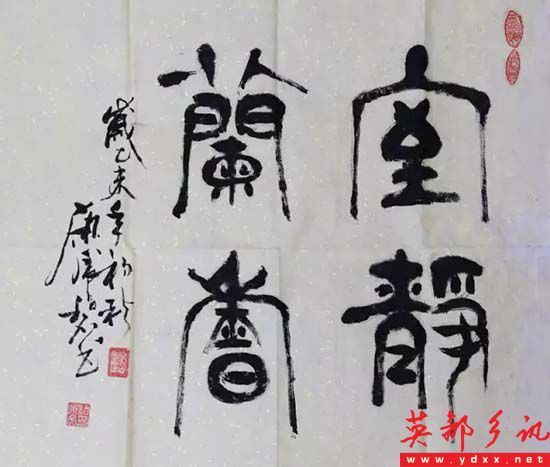 室靜
蘭香
歲乙未年初秋
英都乡讯
www.ydxx.net